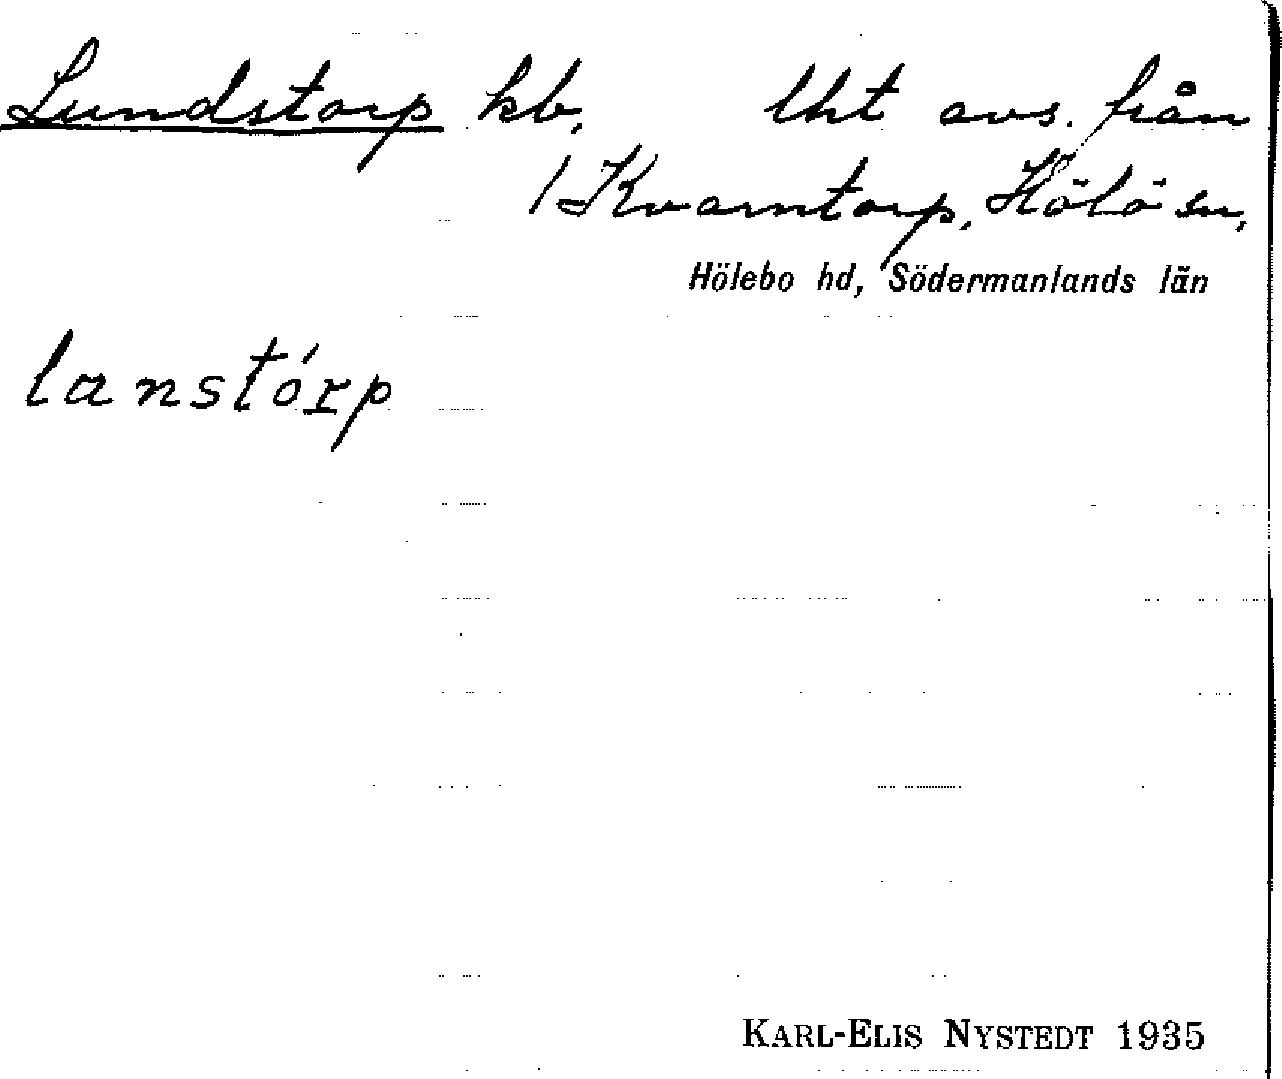 Lundstorp kb, lht avs. från
1 Kvarntorp, Hölö sn,
Hölebo hd, Södermanlands län
lanstórp
KARL-ELIS NYSTEDT 1935